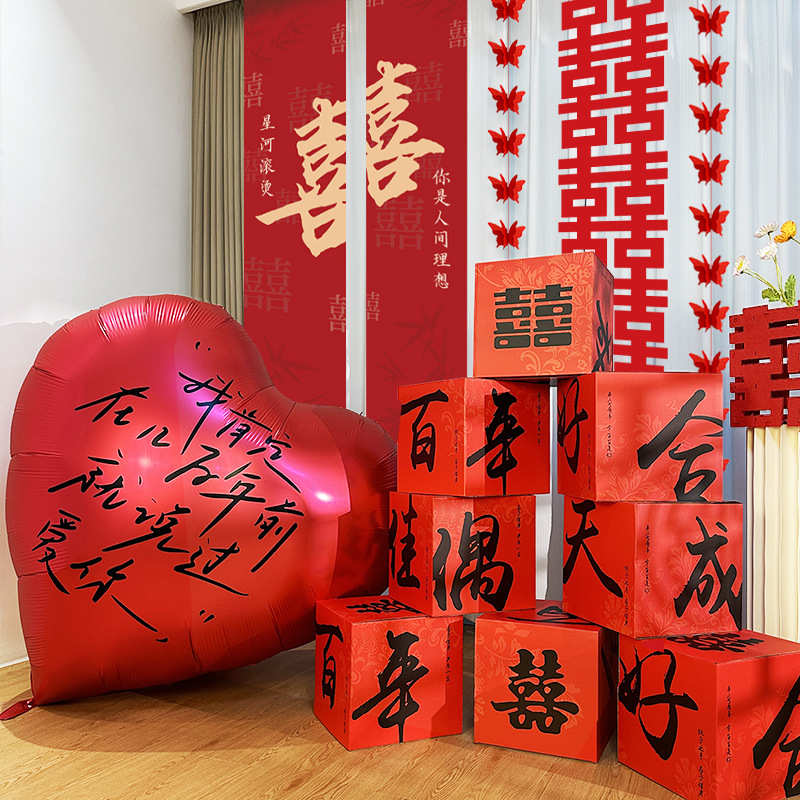 星河滚烫
你是人间理想
囍
囍
囍
"我肯定
在几百年前
就说过
爱你"
囍
百年好合
佳偶天成
百年
囍
好合